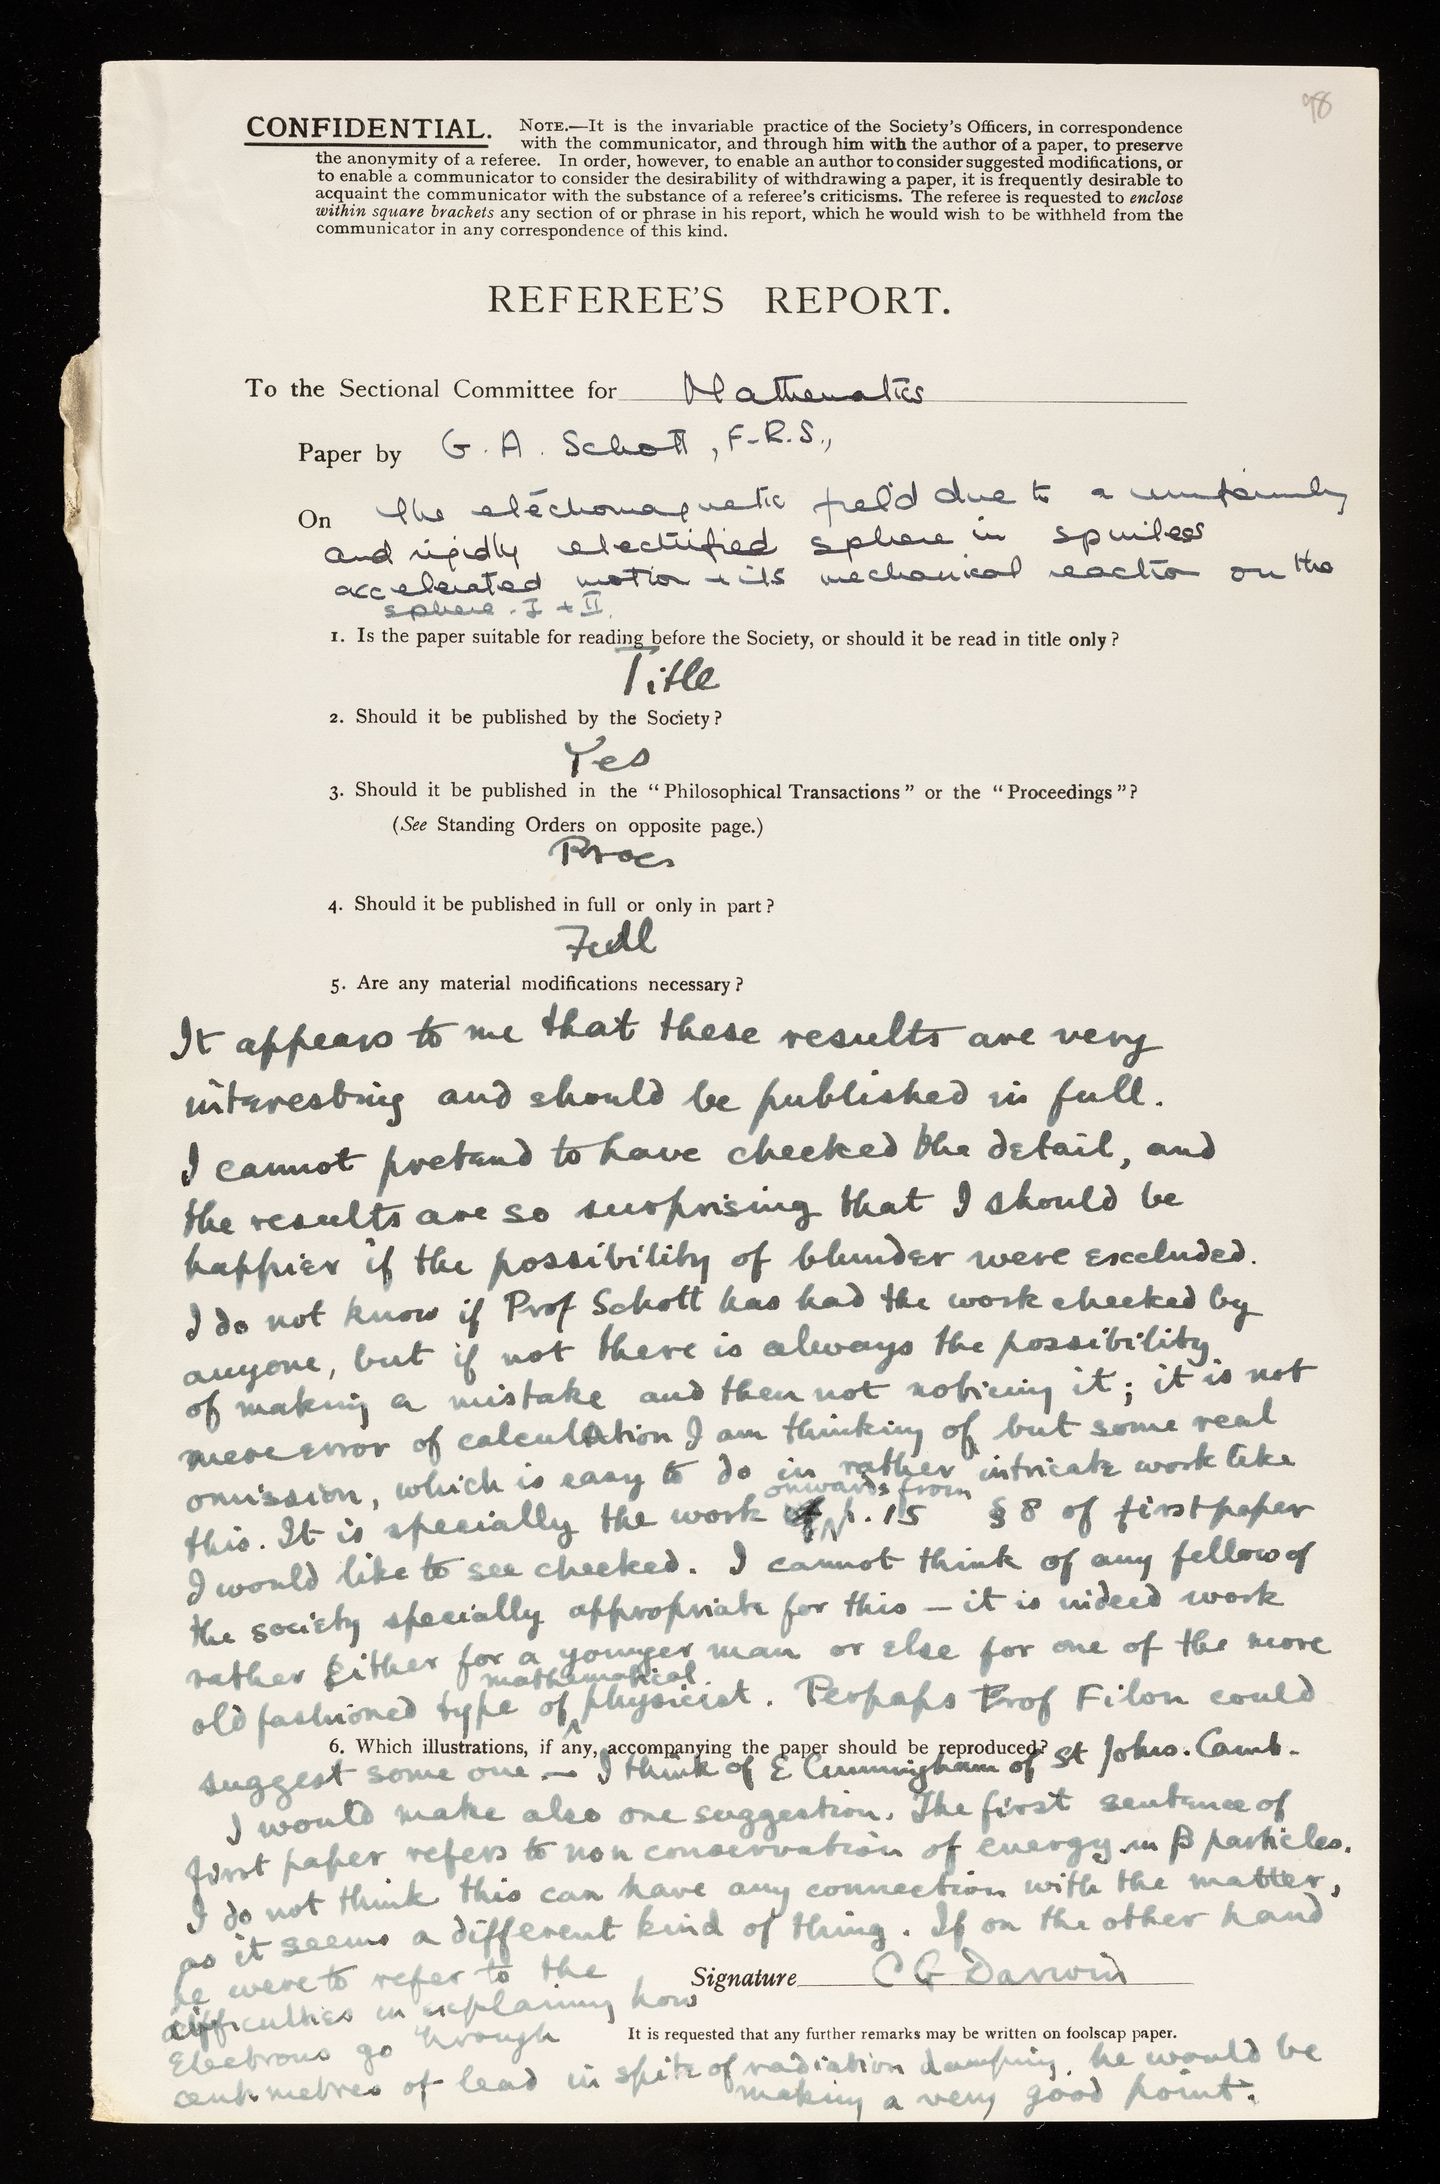 98
CONFIDENTIAL. NOTE.—It is the invariable practice of the Society's Officers, in correspondence
with the communicator, and through him with the author of a paper, to preserve
the anonymity of a referee. In order, however, to enable an author to consider suggested modifications, or
to enable a communicator to consider the desirability of withdrawing a paper, it is frequently desirable to
acquaint the communicator with the substance of a referee's criticisms. The referee is requested to enclose
within square brackets any section of or phrase in his report, which he would wish to be withheld from the
communicator in any correspondence of this kind.
REFEREE'S REPORT.
To the Sectional Committee for Mathematics
Paper by G. A. Schott, F.R.S.,
On the electromagnetic field due to a uniformly
and rigidly electrified sphere in spinless
accelerated motion + its mechanical reaction on the
sphere. I + II.
1. Is the paper suitable for reading before the Society, or should it be read in title only?
Title
2. Should it be published by the Society?
Yes
3. Should it be published in the "Philosophical Transactions" or the "Proceedings"?
(See Standing Orders on opposite page.)
Procs
4. Should it be published in full or only in part?
Full
5. Are any material modifications necessary?
It appears to me that these results are very
interesting and should be published in full.
I cannot pretend to have checked the detail, and
the results are so surprising that I should be
happier if the possibility of blunder were excluded.
I do not know if Prof Schott has had the work checked by
anyone, but if not there is always the possibility
of making a mistake and then not noticing it; it is not
mere error of calculation I am thinking of but some real
omission, which is easy to do in rather intricate work like
this. It is specially the work onwards from p. 15 § 8 of first paper
I would like to see checked. I cannot think of any fellow of
the society specially appropriate for this — it is indeed work
rather either for a younger man or else for one of the more
old fashioned type of mathematical physicist. Perhaps Prof Filon could
6. Which illustrations, if any, accompanying the paper should be reproduced?
suggest some one — I think of E Cunningham of St Johns. Camb.
I would make also one suggestion. The first sentence of
first paper refers to non conservation of energy in β particles.
I do not think this can have any connection with the matter,
as it seems a different kind of thing. If on the other hand
he were to refer to the
Signature C G Darwin
difficulties in explaining how
Electrons go through
It is requested that any further remarks may be written on foolscap paper.
centimetres of lead in spite of radiation damping, he would be
making a very good point.